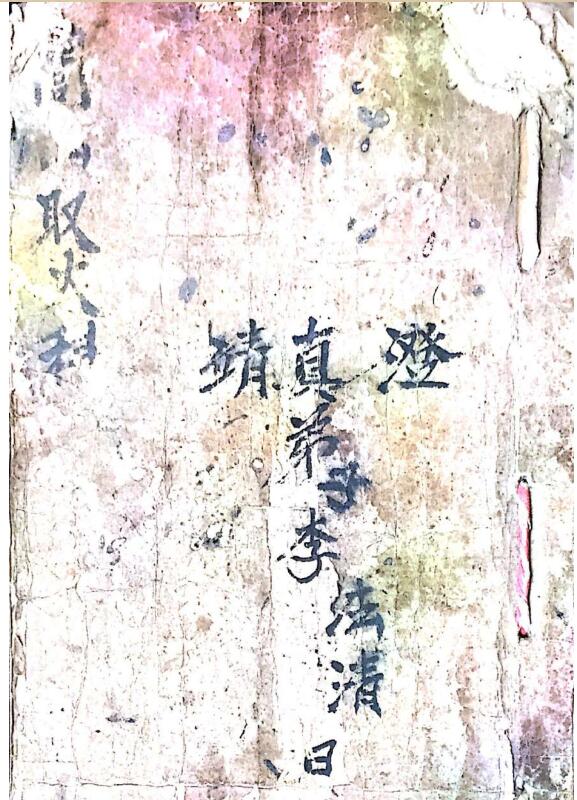 澄
真弟子李法清日
靖
取火科